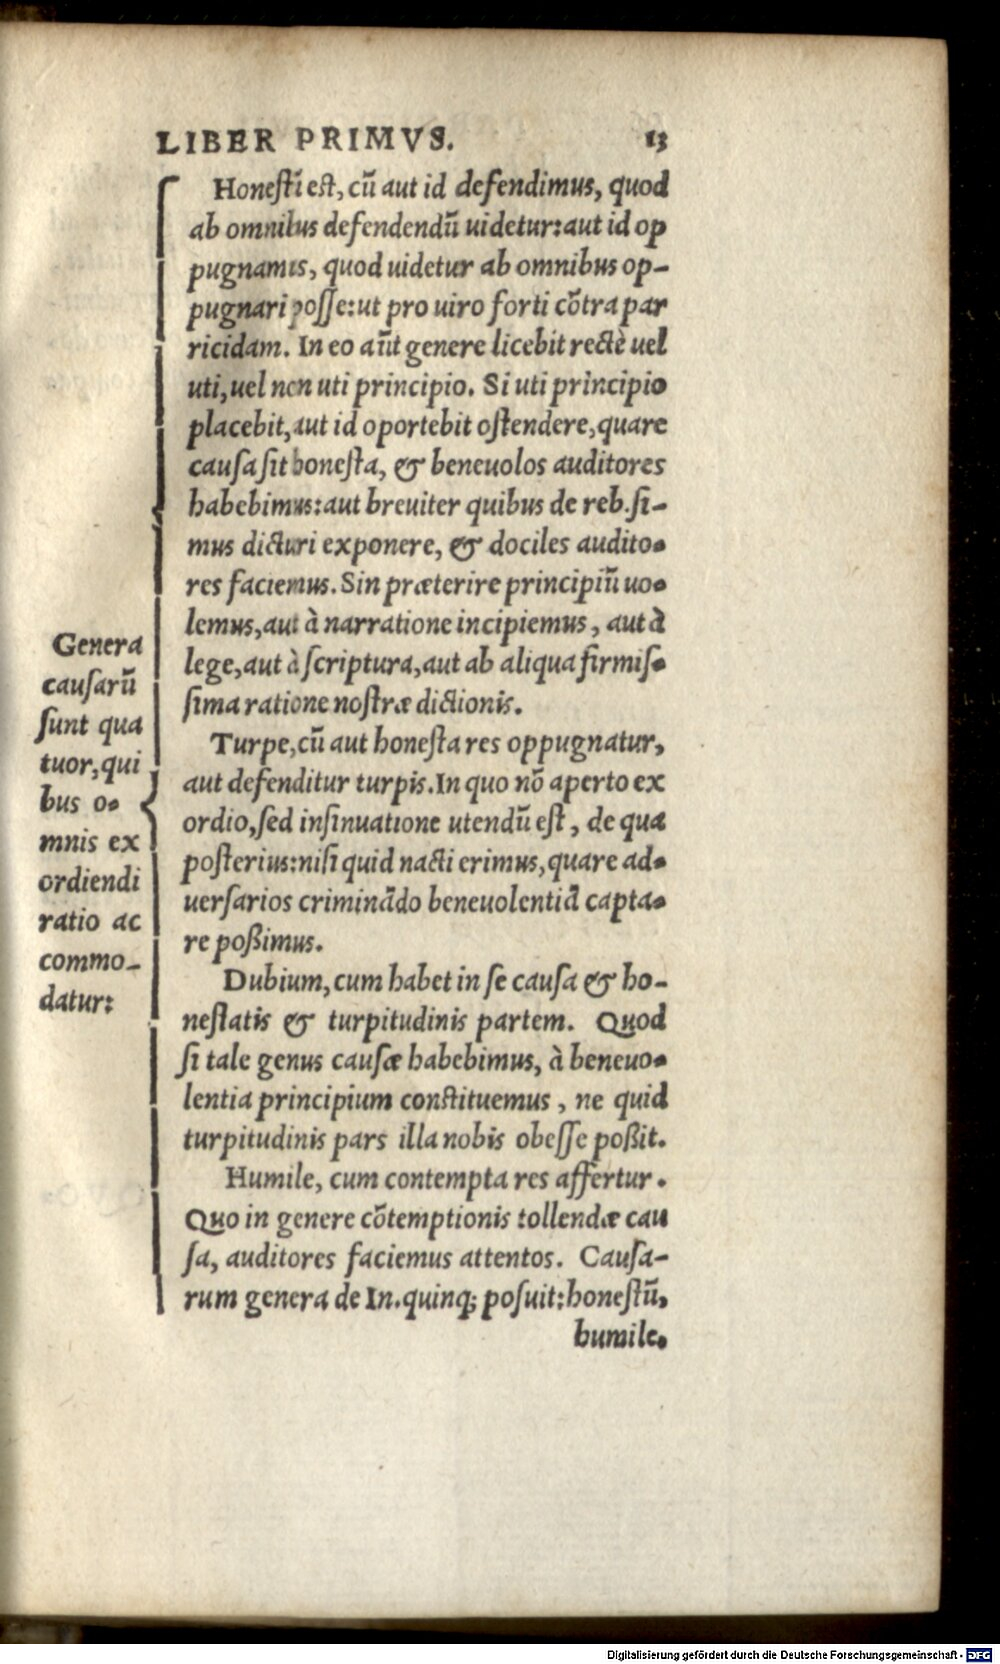 LIBER PRIMVS. 13
Genera
causarũ
ſunt qua
tuor, qui
bus o-
mnis ex
ordiendi
ratio ac
commo-
datur:
Honeſtũ eſt, cũ aut id defendimus, quod
ab omnibus defendendũ uidetur: aut id op
pugnamus, quod uidetur ab omnibus op-
pugnari poſſe: ut pro uiro forti cõtra par
ricidam. In eo aũt genere licebit rectè uel
uti, uel non uti principio. Si uti principio
placebit, aut id oportebit oſtendere, quare
cauſa ſit honeſta, & beneuolos auditores
habebimus: aut breuiter quibus de reb. ſi-
mus dicturi exponere, & dociles audito-
res faciemus. Sin præterire principiũ uo-
lemus, aut à narratione incipiemus, aut à
lege, aut à ſcriptura, aut ab aliqua firmiſ-
ſima ratione noſtræ dictionis.
Turpe, cũ aut honeſta res oppugnatur,
aut defenditur turpis. In quo nõ aperto ex
ordio, ſed inſinuatione utendũ eſt, de qua
poſterius: niſi quid nacti erimus, quare ad-
uerſarios criminãdo beneuolentiã capta-
re poßimus.
Dubium, cum habet in ſe cauſa & ho-
neſtatis & turpitudinis partem. Quod
ſi tale genus cauſæ habebimus, à beneuo-
lentia principium conſtituemus, ne quid
turpitudinis pars illa nobis obeſſe poßit.
Humile, cum contempta res affertur.
Quo in genere cõtemptionis tollendæ cau
ſa, auditores faciemus attentos. Cauſa-
rum genera de In. quinq; poſuit: honeſtũ,
humile.
Digitalisierung gefördert durch die Deutsche Forschungsgemeinschaft - DFG